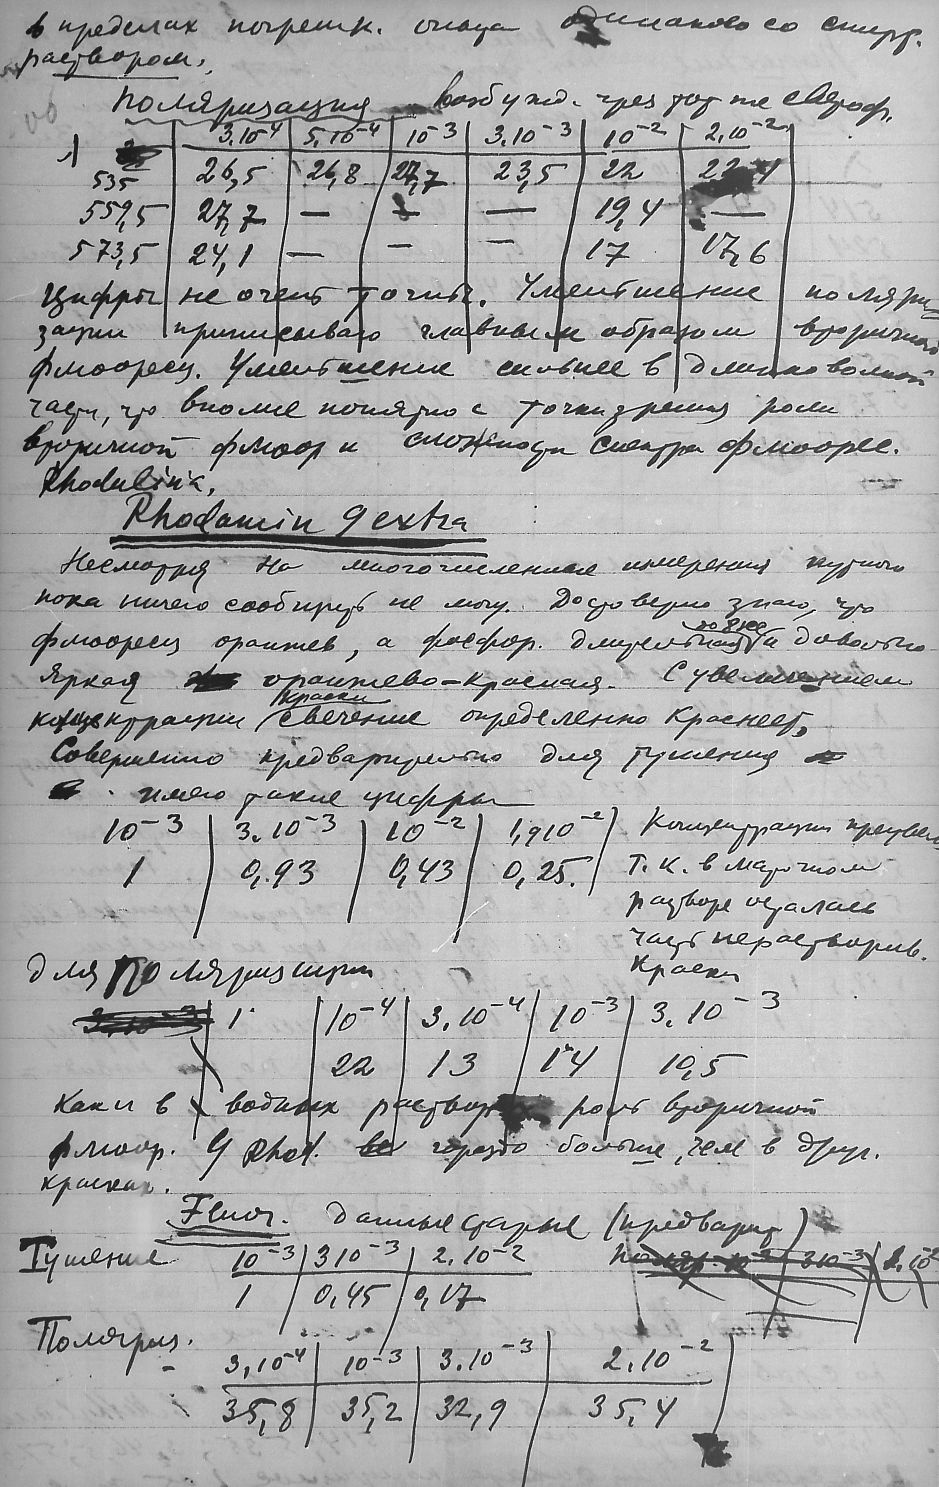 в пределах погрешн. опыта одинаково со спирт.
раствором.
Поляризация возбужд. чрез тот же светоф.
λ 3.10⁻⁴ 5.10⁻⁴ 10⁻³ 3.10⁻³ 10⁻² 2.10⁻²
535 26,5 26,8 27,7 23,5 22
559,5 27,7 — — — 19,4 —
573,5 24,1 — — — 17 17,6
Цифры не очень точны. Уменьшение поляри
зации приписываю главным образом вторичной
флюоресц. Уменьшение сильнее в длинноволной
части, что вполне понятно с точки зрения роли
вторичной флюор и сложности спектра флюорес.
Rhodulina.
Rhodamin g extra
Несмотря на многочисленные измерения путного
пока ничего сообщить не могу. Достоверно знаю, что
флюоресц оранжев, а фосфор. длительная и довольно
яркая оранжево-красная. С увеличением
концентрации краски свечение определенно краснеет,
Совершенно предварительно для тушения
имею такие цифры
10⁻³ 3.10⁻³ 10⁻² 1,9 10⁻² Концентрации
1 0,93 0,43 0,25. т.к. в маточном
растворе осталась
часть нерастворив.
краски
для Поляризации
1 10⁻⁴ 3.10⁻⁴ 10⁻³ 3.10⁻³
22 13 14 10,5
Как и в водных роль вторичной
флюор. У Rhod. гораздо больше, чем в друг.
красках.
Fluor. данные старые (предварит)
Тушение 10⁻³ 3 10⁻³ 2.10⁻²
1 0,45 0,17
Поляриз.
3,10⁻⁴ 10⁻³ 3.10⁻³ 2.10⁻²
35,8 35,2 32,9 35,4